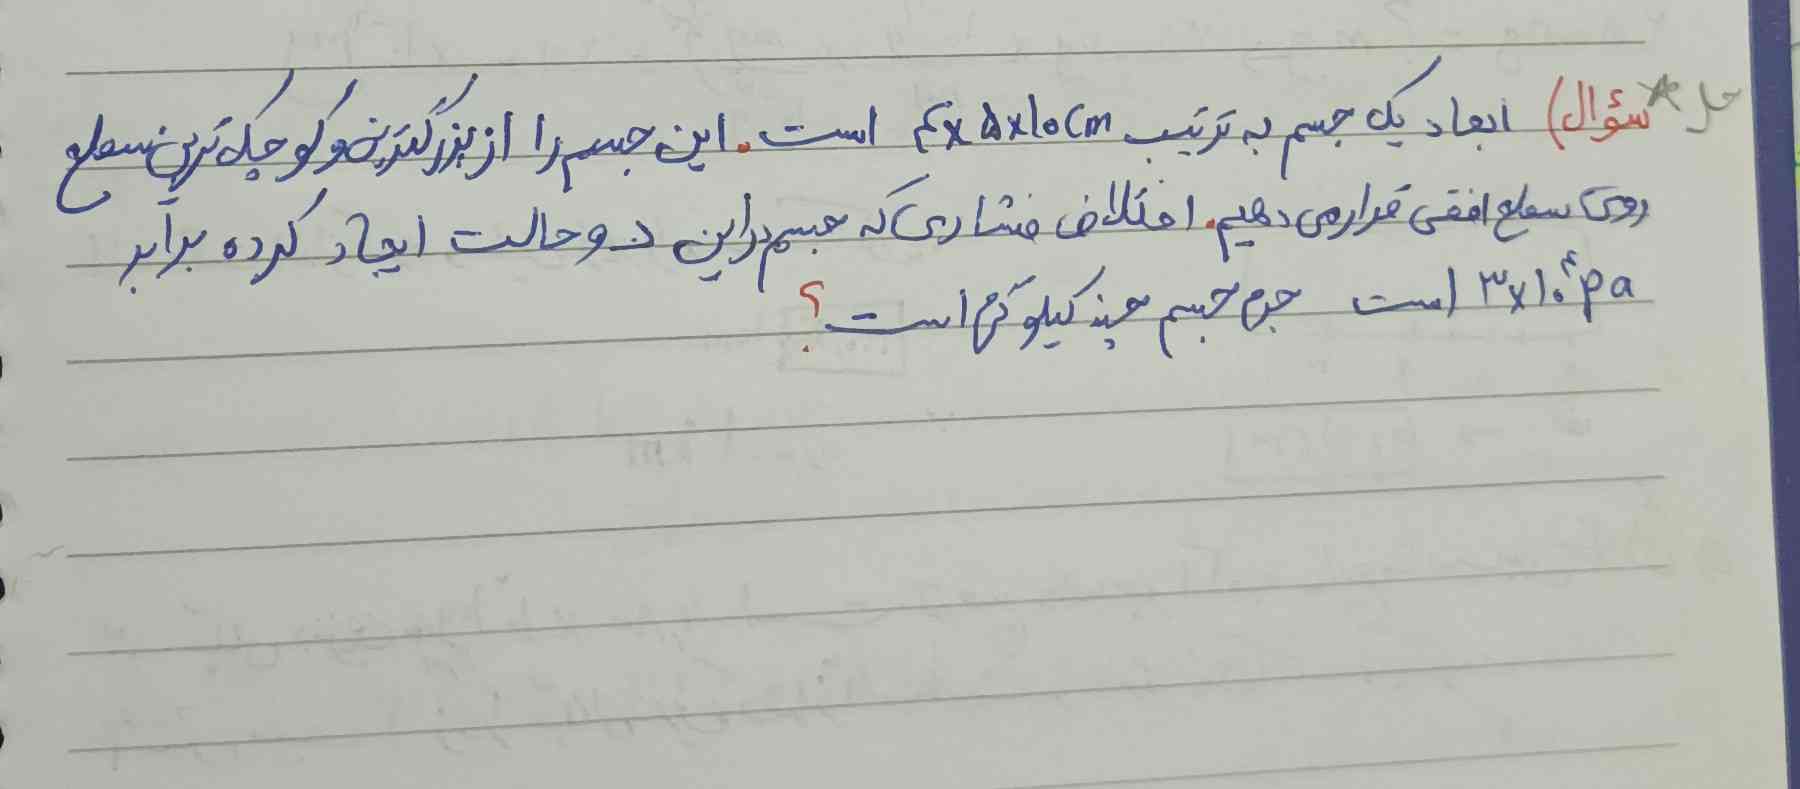 حل * سؤال) ابعاد یک جسم به ترتیب ۴x۵x۱۰cm است. این جسم را از بزرگترین و کوچک ترین سطح
روی سطح افقی قرار می دهیم. اختلاف فشاری که جسم در این دو حالت ایجاد کرده برابر
۳x۱۰^۴pa است جرم جسم چند کیلوگرم است؟